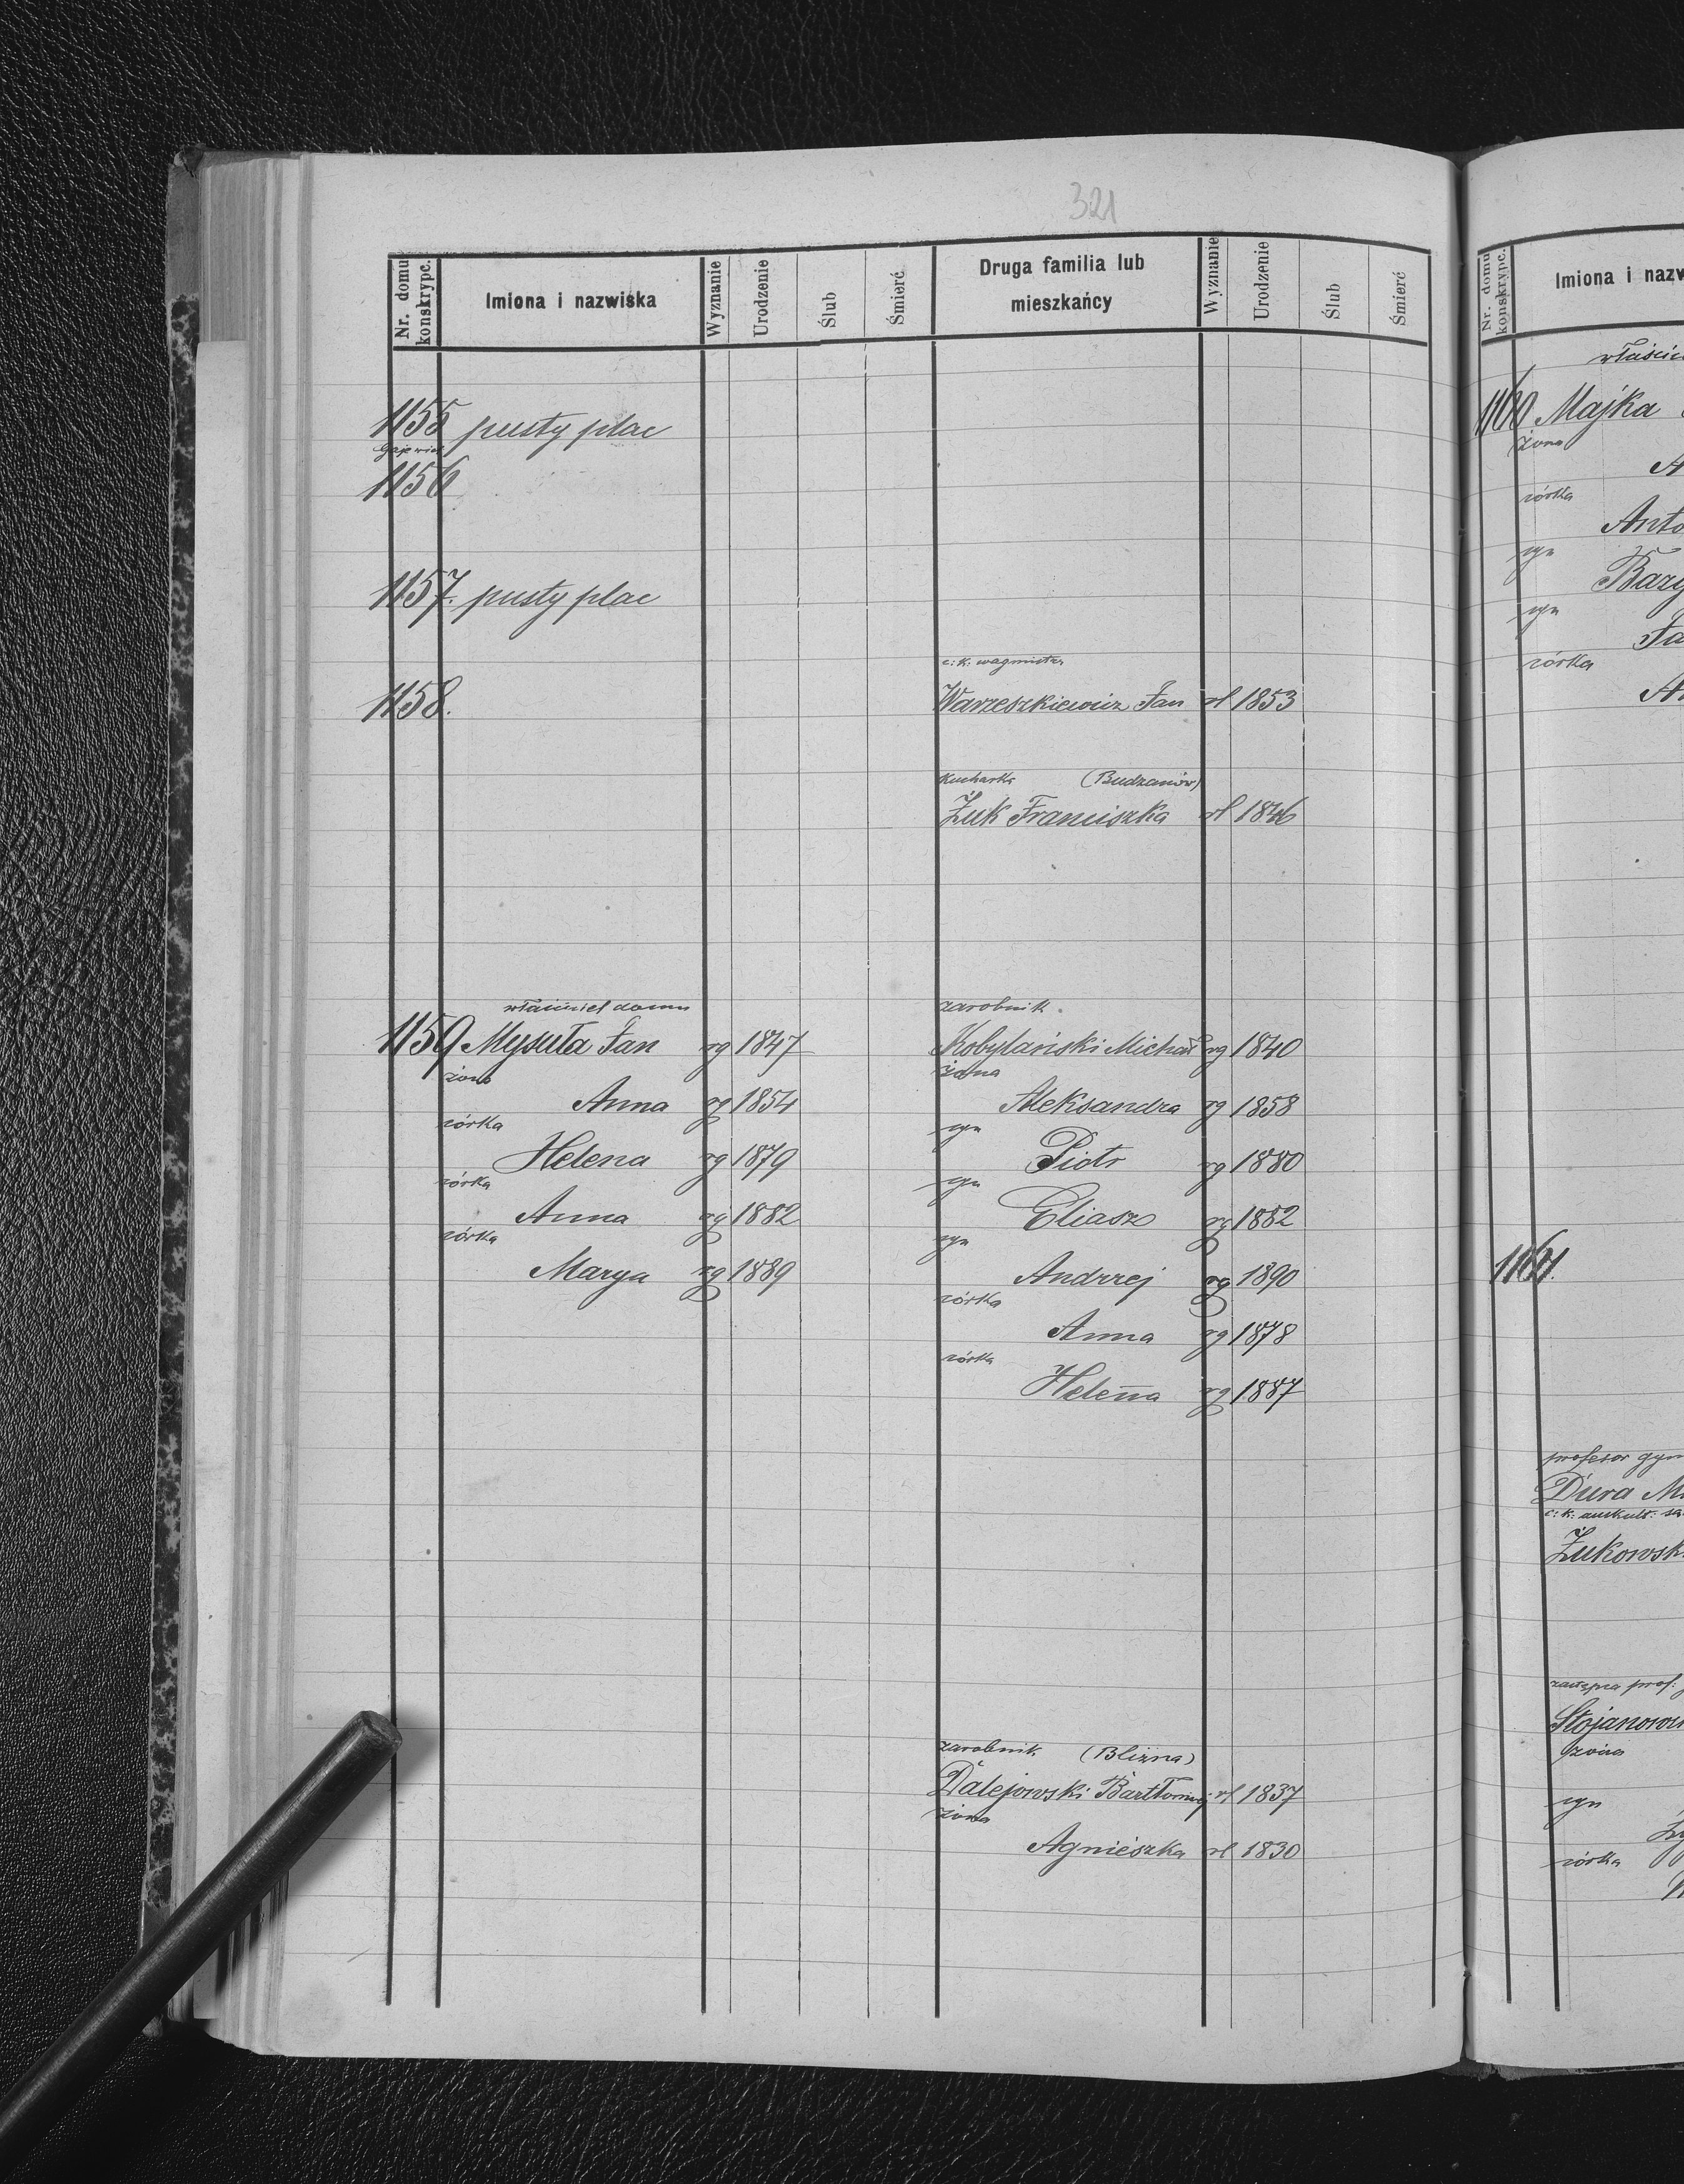 321
Nr. domu konskrypc. Imiona i nazwiska Wyznanie Urodzenie Ślub Śmierć Druga familia lub mieszkańcy Wyznanie Urodzenie Ślub Śmierć
1155 pusty plac
1156
1157. pusty plac
c: k: wagmistrz
1158. Warzeszkiewicz Jan rl 1853
Kucharka (Budzanów)
Żuk Franciszka rl 1846
właściciel domu
1159 Mysuła Jan rg 1847
żona
Anna rg 1854
córka
Helena rg 1879
córka
Anna rg 1882
córka
Marya rg 1889
zarobnik
Kobylański Michał rg 1840
żona
Aleksandra rg 1858
syn
Piotr rg 1880
syn
Eliasz rg 1882
syn
Andrzej rg 1890
córka
Anna rg 1878
córka
Helena rg 1887
zarobnik (Blizna)
Dalejowski Bartłomiej rl 1837
żona
Agnieszka rl 1830
Nr. domu konskrypc. Imiona i nazw
właścic
1160 Majka
żona
A
córka
Anto
syn
Bazy
syn
Ja
córka
An
1161.
profesor gym
Dura M
c: k: auskult: są
Żukowsk
zastępca prof:
Stojanow
żona
syn
córka